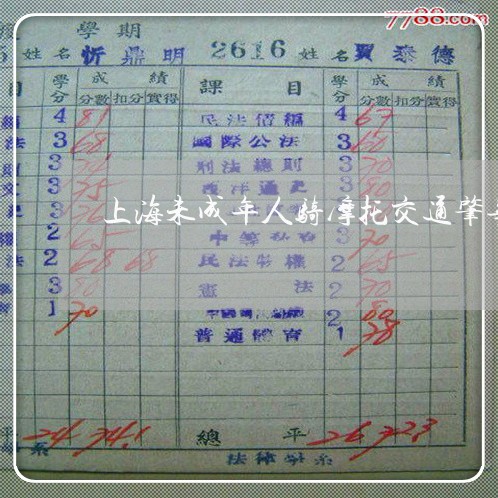 7788.com
學期
5 姓名 忻鼎明 2616 姓名 賈泰德
目 學分 成績 課目 學分 成績
分數 扣分 實得 分數 扣分 實得
4 81 民法債編 4 67
法 3 68 國際公法 3 60
3 刑法總則 3 70
3 75 西洋通史 3 80
上海未成年人騎摩托交通肇
2 65 3 70
法 2 68 68 民法物權 2 65
3 80 憲法 2 70
1 70 2 80
普通體育 1 78
平 24 74.1 總平 26 72.3
系 法律學系